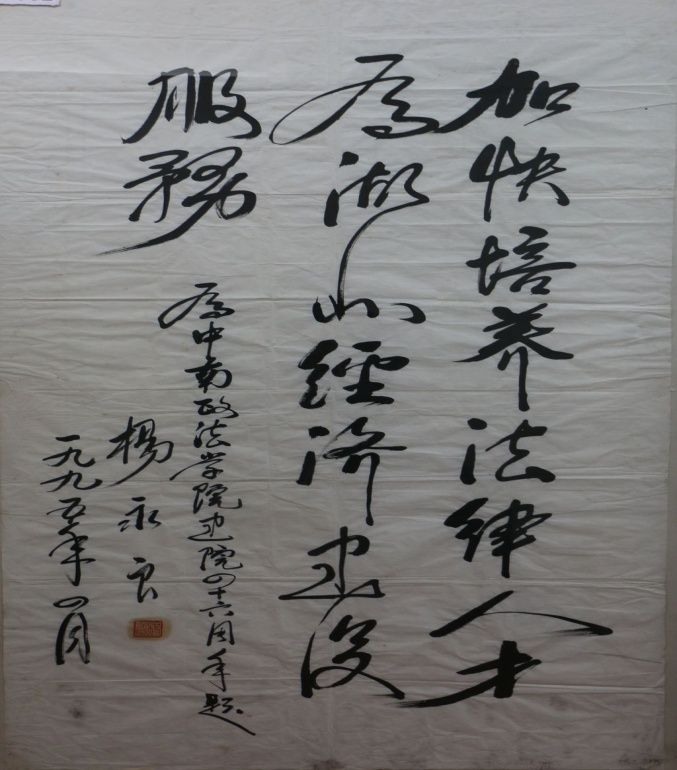 加快培养法律人才
為湖北經济建设
服務
為中南政法学院建院四十六周年题
楊永良
一九九五年四月